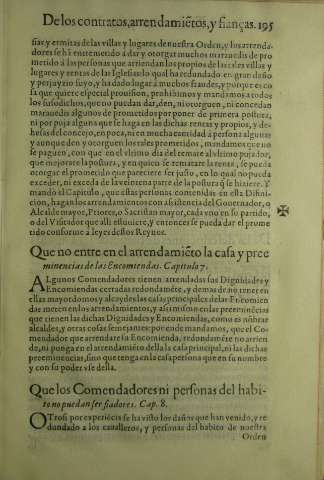 De los contratos, arrendamiẽtos, y fianças. 195
sias, y ermitas de las villas y lugares de nuestra Orden, y los arrenda-
dores se hã entremetido a dar y otorgar muchos marauedis de pro-
metido á las personas que arriendan los propios de las tales villas y
lugares y rentas de las Iglesias: lo qual ha redundado en gran daño
y perjuyzio suyo, y ha dado lugar à muchos fraudes, y porque es co
sa que quiere especial prouision, prohibimos y mandamos a todos
los susodichos, que no puedan dar, den, ni otorguen, ni concedan
marauedis algunos de prometidos por poner de primera postura,
ni por puja alguna que se haga en las dichas rentas y propios, y de-
hesas del concejo, en poca, ni en mucha cantidad a persona alguna:
y aunque den y otorguen los tales prometidos, mandamos que no
se paguen, con que en el vltimo dia del remate al vltimo pujador,
que mejorare la postura, y en quien se rematare la renta, se pueda
otorgar el prometido que pareciere ser justo, en lo qual no pueda
exceder, ni exceda de la veintena parte de la postura q̃ se hiziere. Y
mãdò el Capitulo, que estas personas contenidas en esta Difini-
cion, hagan los arrendamientos con assistencia del Gouernador, o
Alcalde mayor, Priores, o Sacristan mayor, cada vno en su partido,
o del Visitador que alli estuuiere, y entonces se pueda dar el prome
tido conforme a leyes destos Reynos.
Que no entre en el arrendamiẽto la casa y pree
minencias de las Encomiendas. Capitulo 7.
ALgunos Comendadores tienen arrendadas sus Dignidades y
Encomiendas cerradas redondamẽte, y demas de no tener en
ellas mayordomos y alcaydes las casas principales de las Encomien
das meten en los arrendamientos, y assimismo en las preeminẽcias
que tienen las dichas Dignidades y Encomiendas, como es nõbrar
alcaldes, y otras cosas semejantes: por ende mandamos, que el Co-
mendador que arrendare la Encomienda, redondamẽte no arrien
de, ni ponga en el arrendamiẽto della la casa principal, ni las dichas
preeminencias, sino que tenga en la casa persona que en su nombre
y con su poder vse della.
Que los Comendadores ni personas del habi-
to no puedan ser fiadores. Cap. 8.
OTrosi por experiẽcia se ha visto los daños que han venido, y re
dundado a los caualleros, y personas del habito de nuestra
Orden